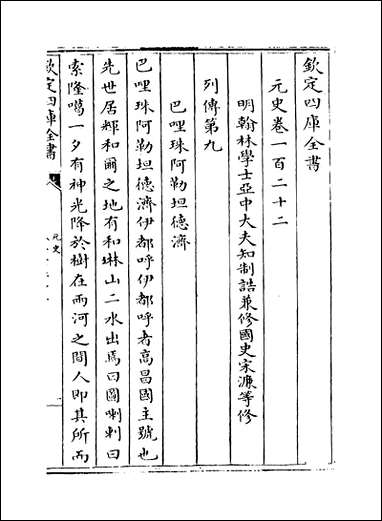 欽定四庫全書
元史卷一百二十二
明翰林學士亞中大夫知制誥兼修國史宋濂等修
列傳第九
巴哩珠阿勒坦德濟
巴哩珠阿勒坦德濟伊都呼伊都呼者高昌國主號也
先世居輝和爾之地有和琳山二水出焉曰圖喇剌曰
索隆噶一夕有神光降於樹在兩河之間人即其所而
欽定四庫全書
元史